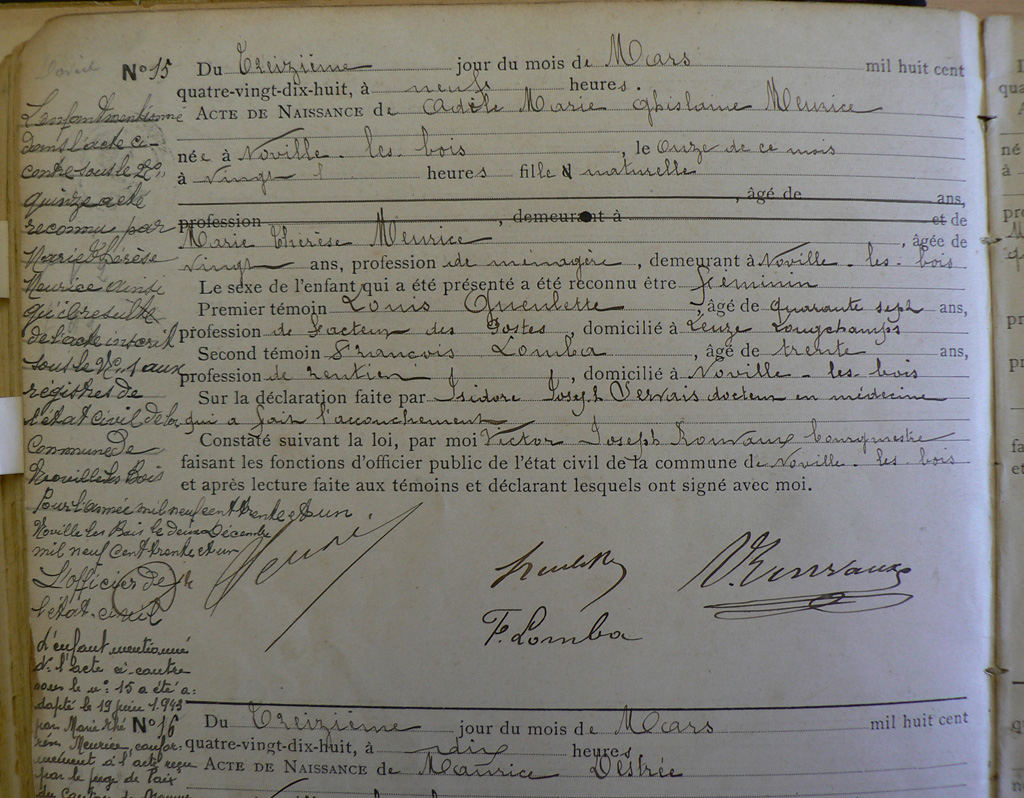 N° 15 Du Treizième jour du mois de Mars mil huit cent
quatre-vingt-dix-huit, à neufs heures.
ACTE DE NAISSANCE de Adèle Marie Ghislaine Meurice
née à Noville-les-bois, le Onze de ce mois
à Vingt heures fille naturelle
, âgé de ans,
profession , demeurant à et de
Marie Thérèse Meurice , âgée de
Vingt ans, profession de ménagère, demeurant à Noville-les-bois
Le sexe de l'enfant qui a été présenté a été reconnu être féminin
Premier témoin Louis Queulette, âgé de quarante sept ans,
profession de facteur des Postes, domicilié à Leuze Longchamps
Second témoin François Lomba, âgé de trente ans,
profession de rentier, domicilié à Noville-les-bois
Sur la déclaration faite par Isidore Joseph Gervais docteur en médecine
qui a fait l'accouchement
Constaté suivant la loi, par moi Victor Joseph Rouvaux bourgmestre
faisant les fonctions d'officier public de l'état civil de la commune de Noville-les-bois
et après lecture faite aux témoins et déclarant lesquels ont signé avec moi.
F. Lomba
L'enfant mentionné
dans l'acte ci-
contre sous le N°
quinze a été
reconnu par
Marie Thérèse
Meurice ainsi
qu'il résulte
de l'acte inscrit
sous le N° 1 aux
régistres de
l'état civil de la
Commune de
Noville les Bois
Pour l'année mil neuf cent trente et un.
Noville les Bois le deux Décembre
mil neuf cent trente et un
L'officier de
l'état-civil
L'enfant mentionné
ds l'acte ci-contre
sous le n° 15 a été a-
dopté le 19 juin 1943
par Marie Thé
rèse Meurice, confor-
mément à l'acte reçu
par le juge de Paix
du Canton de
N° 16 Du Treizième jour du mois de Mars mil huit cent
quatre-vingt-dix-huit, à dix heures
ACTE DE NAISSANCE de Maurice Destrée